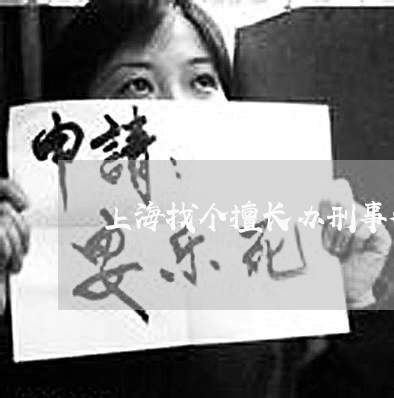 申請：
上海找个擅长办刑事
安乐死